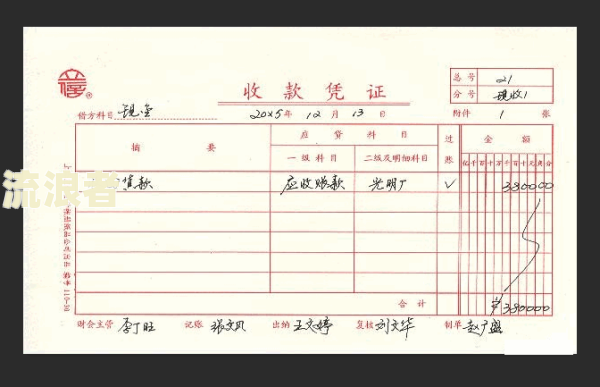 收款凭证
总号 21
分号 现收1
借方科目 现金
20X5年 12月 13日
附件 1 张
摘要 应贷科目 过账 金额
一级科目 二级及明细科目 亿千百十万千百十元角分
售款 应收账款 光明厂 √ 380000
合计 ¥380000
财会主管 李丁旺 记账 张文凡 出纳 王文婷 复核 刘文华 制单 赵广盛
流浪者